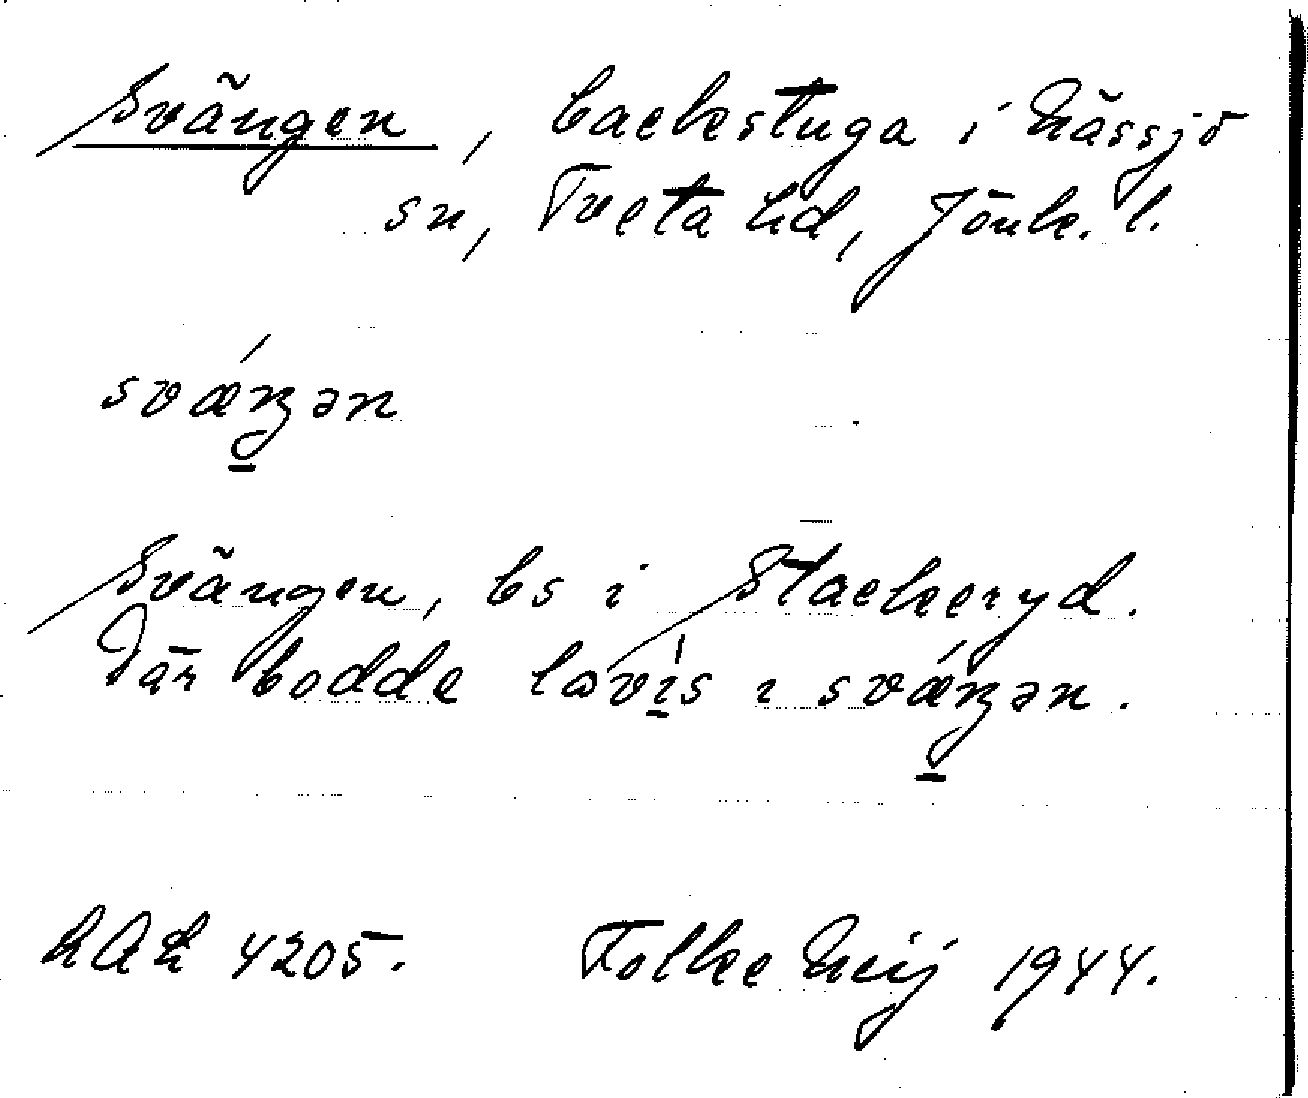 Svängen, backstuga i Nässjö
sn, Tveta hd, Jönk. l.
svǽŋən
Svängen, bs i Stackeryd.
Där bodde lovís i svǽŋən.
4205. Folke 1944.